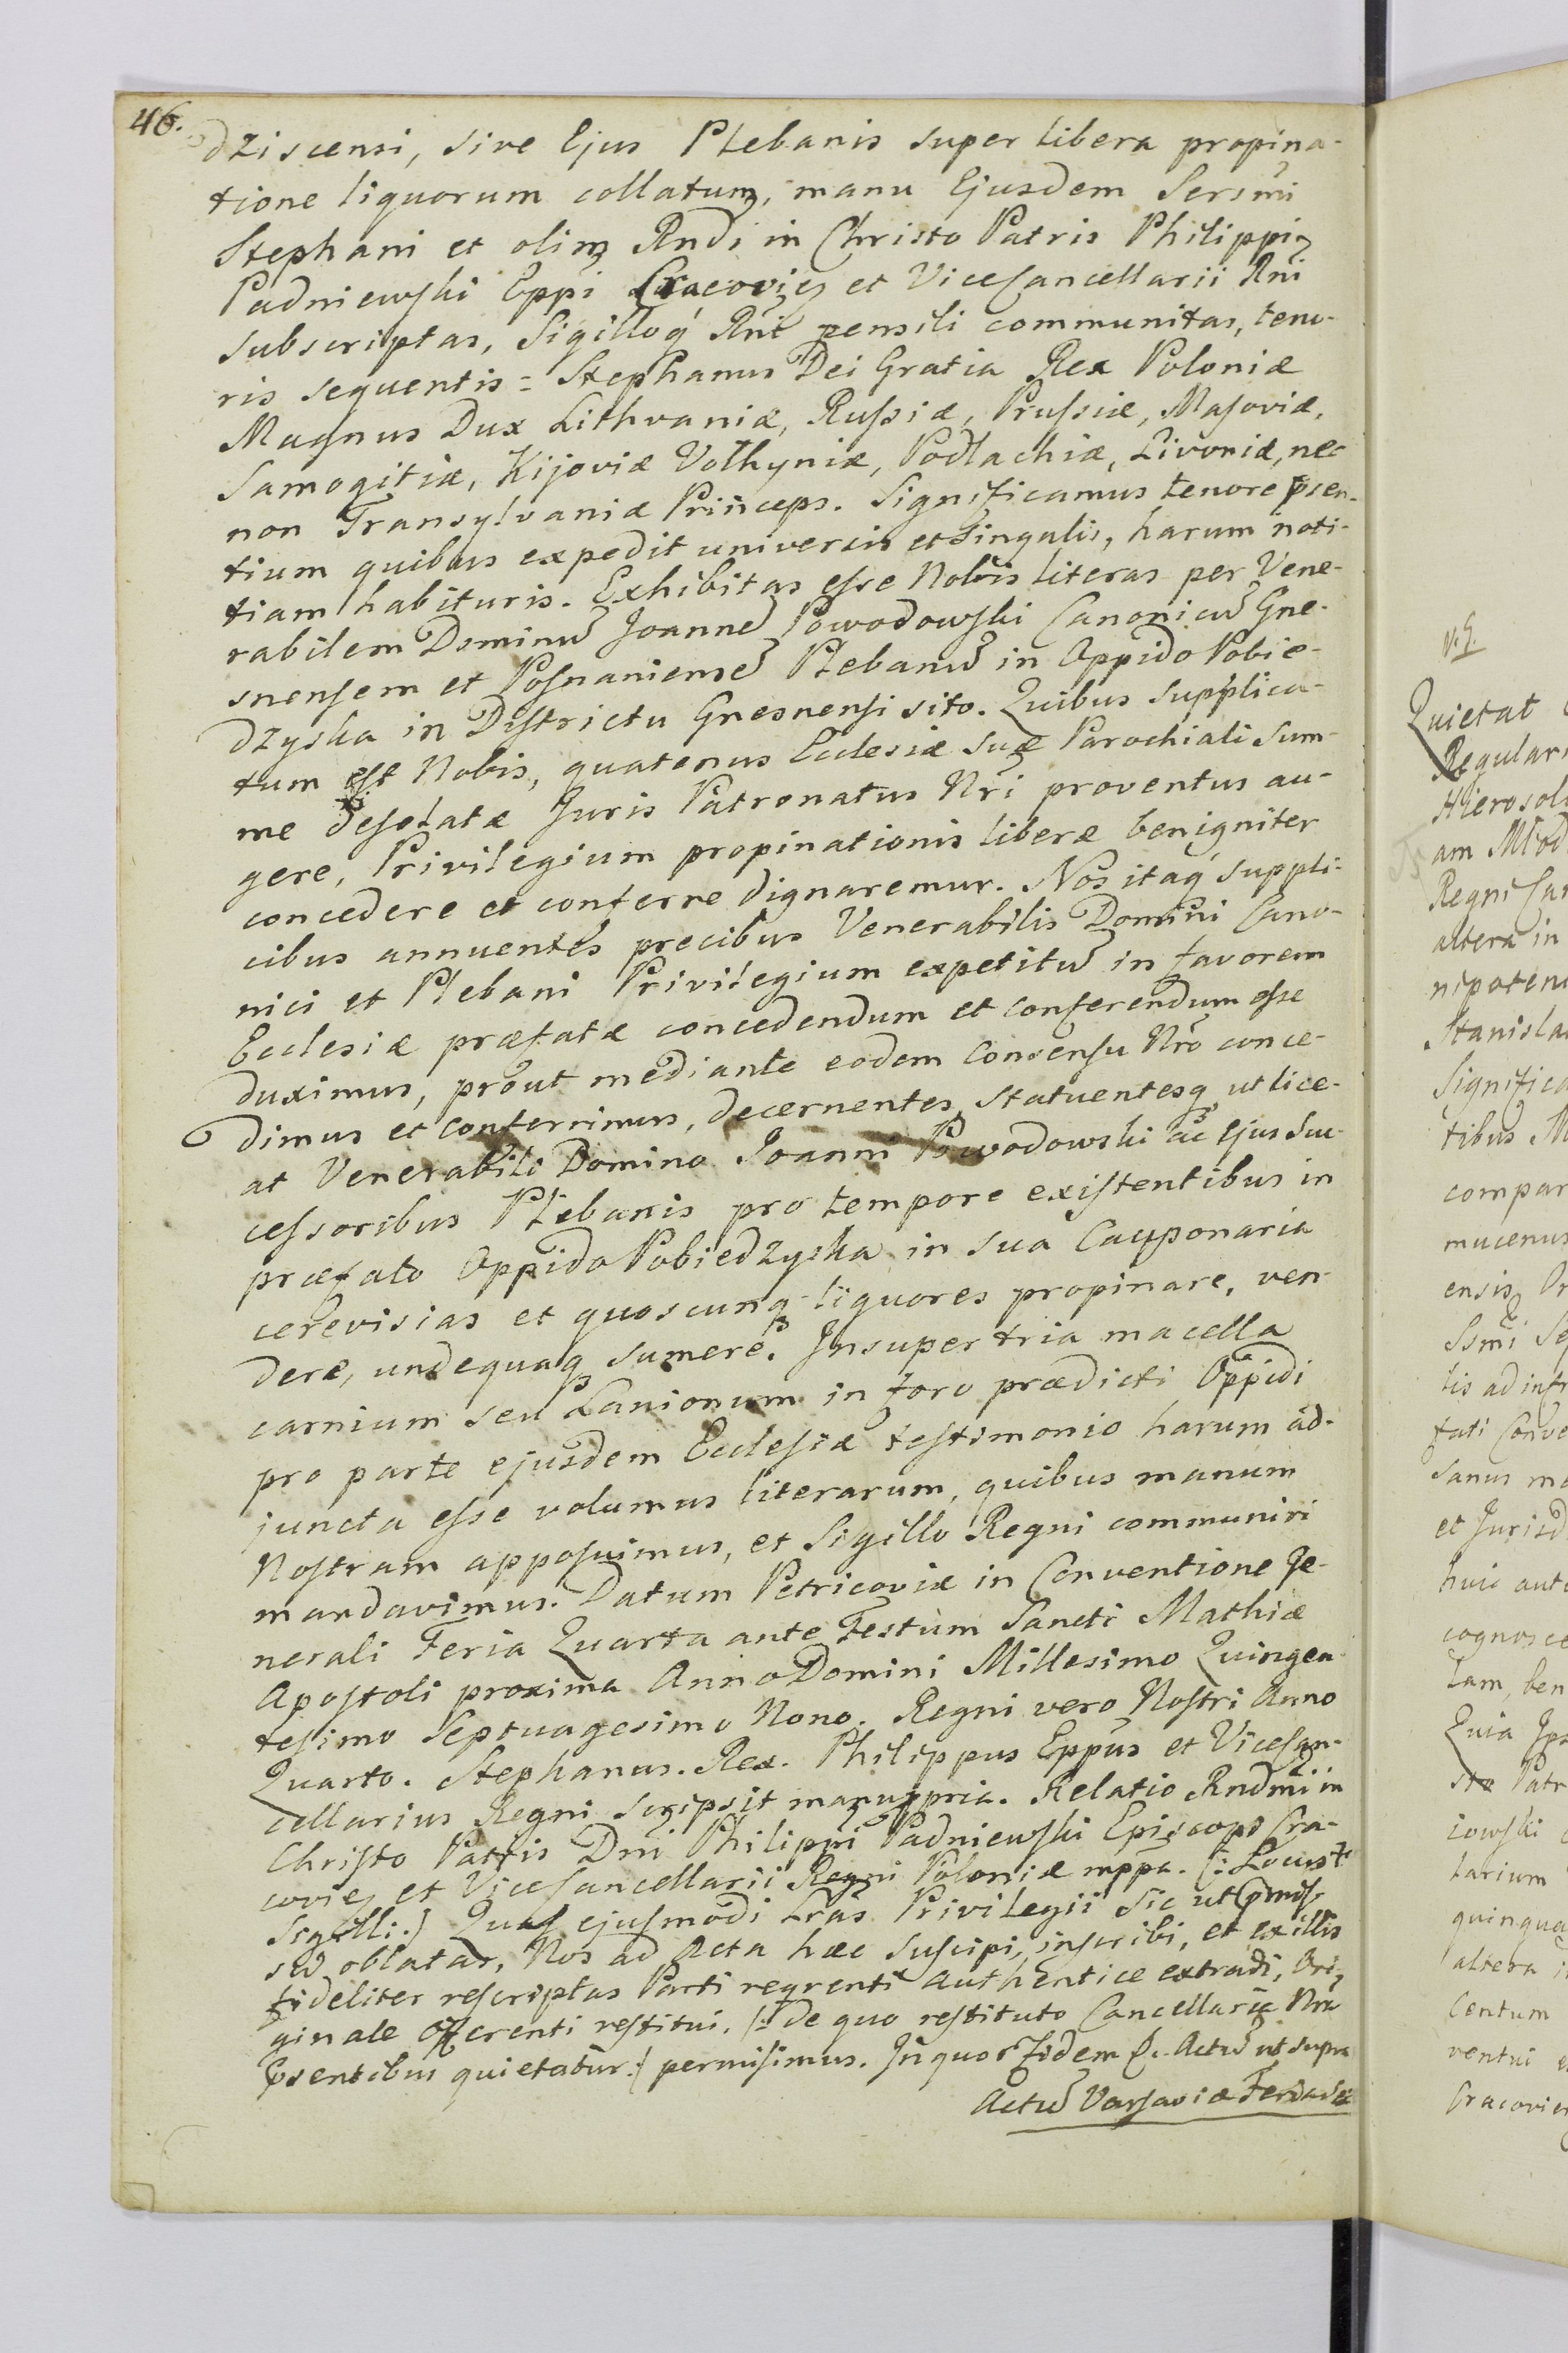 46.
dziscensi, sive Ejus Plebanis super libera propina-
tione liquorum collatum, manu Ejusdem Sersmi
Stephani et olim Rndi in Christo Patris Philippi
Padniewski Eppi Cracovien et ViceCancellarii Rni
subscriptas, Sigilloq́ Rni pensili communitas, teno-
ris sequentis = Stephanus Dei Gratia Rex Poloniæ
Magnus Dux Lithvaniæ, Russiæ, Prussiæ, Masoviæ,
Samogitiæ, Kijoviæ Volhyniæ, Podlachiæ, Livoniæ, nec
non Transylvaniæ Princeps. Significamus tenore psen-
tium quibus expedit universis et singulis, harum noti-
tiam habituris. Exhibitas esse Nobis literas per Vene-
rabilem Dominū Joannē Powodowski Canonicū Gne-
snensem et Posnaniensē Plebanū in Oppido Pobie-
dzyska in Districtu Gnesnensi sito. Quibus supplica-
tum est Nobis, quatenus Ecclesiæ suæ Parochiali sum-
me desolatæ Juris Patronatus Nri proventus au-
gere, Privilegium propinationis liberæ benigniter
concedere et conferre dignaremur. Nos itaq́ suppli-
cibus annuentes precibus Venerabilis Domini Cano-
nici et Plebani Privilegium expetitū in favorem
Ecclesiæ præfatæ concedendum et conferendum esse
duximus, prout mediante eodem Consensu Nro conce-
dimus et conferimus, decernentes, statuentesq, ut lice-
at Venerabili Domino Joanni Powodowski ac Ejus Suc-
cessoribus Plebanis pro tempore existentibus in
præfato Oppido Pobiedzyska in sua Cauponaria
cerevisias et quoscunq liquores propinare, ven-
dere, undequaq sumere. Insuper tria macella
carnium seu Lanionum in foro prædicti Oppidi
pro parte ejusdem Ecclesiæ testimonio harum ad-
juncta esse volumus literarum, quibus manum
Nostram apposuimus, et Sigillo Regni communiri
mandavimus. Datum Petricoviæ in Conventione Ge-
nerali Feria Quarta ante Festum Sancti Mathiæ
Apostoli proxima Anno Domini Millesimo Quingen-
tesimo Septuagesimo Nono. Regni vero Nostri Anno
Quarto. Stephanus. Rex. Philippus Eppus et ViceCan-
cellarius Regni scripsit manu ppria. Relatio Rndmi in
Christo Patris Dni Philippi Padniewski Episcopi Cra-
covien et ViceCancellarii Regni Poloniæ mppa. (: Locus
Sigilli:) Quas ejusmodi Lras Privilegii sic ut pmis-
sū oblatas, Nos ad Acta hæc suscipi, inscribi, et ex illis
fideliter rescriptas Parti reqrenti authentice extradi, Ori-
ginale offerenti restitui, /: De quo restituto Cancellaria Nra
psentibus quietatur :/ permisimus. In quor Fidem &. Actū ut supra
Actū Varsaviæ Feria
N.G.
Quietat
Regular
Hierosol
am
Regni Can
altera in
nipoten
Stanisla
Significa
tibus
compar
mucenus
ensis, Or
Ssmi
lis ad inf
fati Conve
sanus
et Jurisd
huic
cognosce
lam, ben
Quia
Patr
iowski
larium
quinqua
altera
Centum
ventui
Cracovien